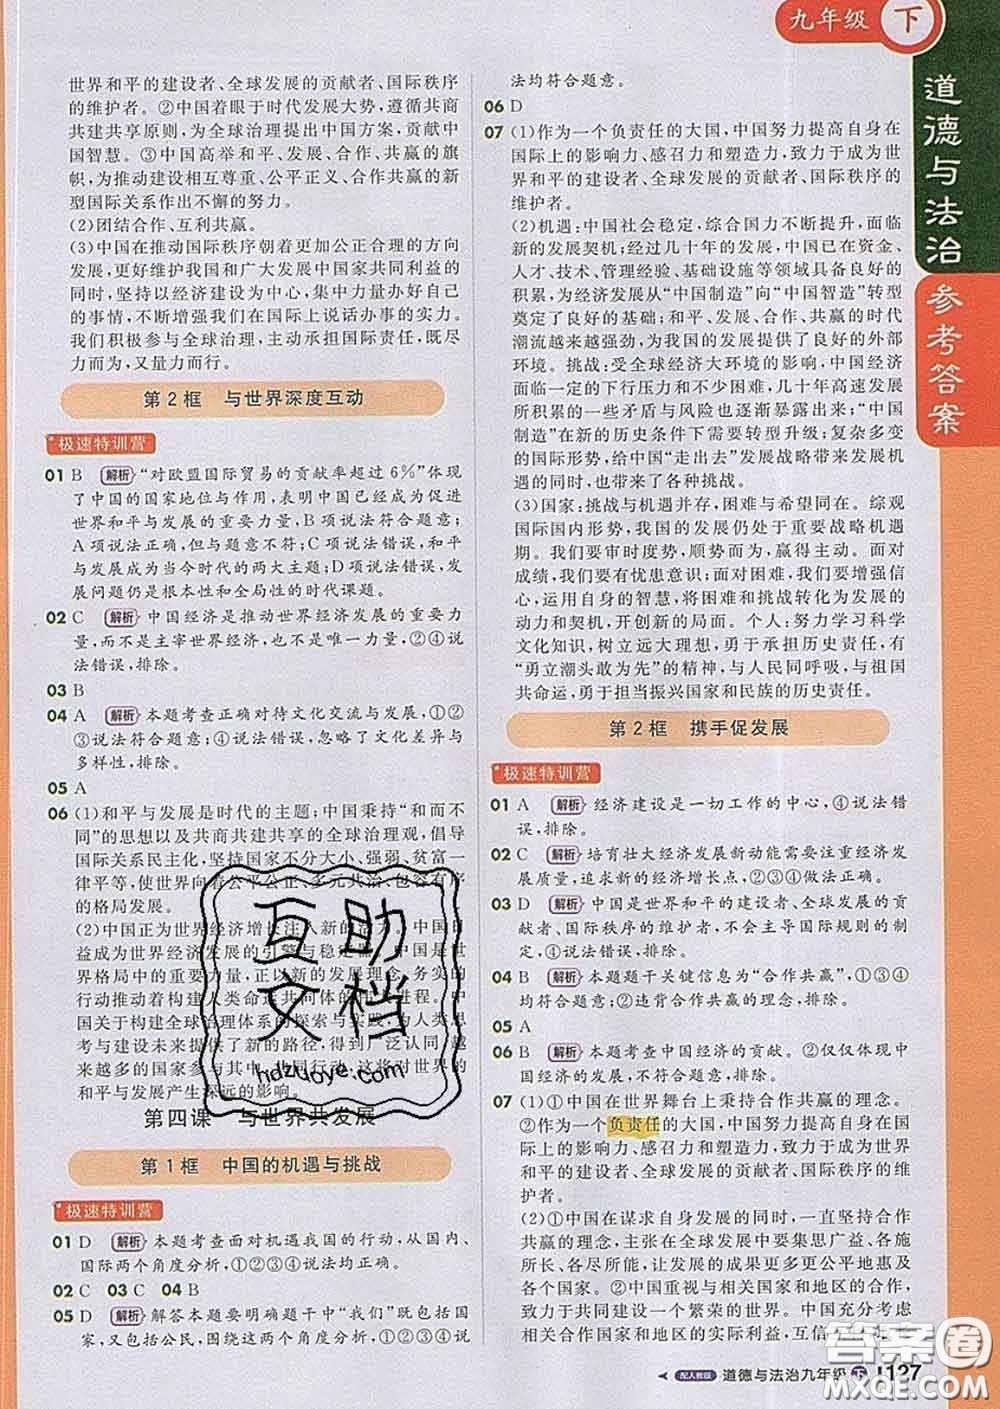 九年级 下
道德与法治
参考答案
世界和平的建设者、全球发展的贡献者、国际秩序
的维护者。②中国着眼于时代发展大势,遵循共商
共建共享原则,为全球治理提出中国方案,贡献中
国智慧。③中国高举和平、发展、合作、共赢的旗
帜,为推动建设相互尊重、公平正义、合作共赢的新
型国际关系作出不懈的努力。
(2)团结合作、互利共赢。
(3)中国在推动国际秩序朝着更加公正合理的方向
发展,更好维护我国和广大发展中国家共同利益的
同时,坚持以经济建设为中心,集中力量办好自己
的事情,不断增强我们在国际上说话办事的实力。
我们积极参与全球治理,主动承担国际责任,既尽
力而为,又量力而行。
第2框 与世界深度互动
极速特训营
01 B 解析 “对欧盟国际贸易的贡献率超过6%”体现
了中国的国家地位与作用,表明中国已经成为促进
世界和平与发展的重要力量,B项说法符合题意;
A项说法正确,但与题意不符;C项说法错误,和平
与发展成为当今时代的两大主题;D项说法错误,发
展问题仍是根本性和全局性的时代课题。
02 C 解析 中国经济是推动世界经济发展的重要力
量,而不是主宰世界经济,也不是唯一力量,②④说
法错误,排除。
03 B
04 A 解析 本题考查正确对待文化交流与发展,①②
③说法符合题意;④说法错误,忽略了文化差异与
多样性,排除。
05 A
06 (1)和平与发展是时代的主题;中国秉持“和而不
同”的思想以及共商共建共享的全球治理观,倡导
国际关系民主化,坚持国家不分大小、强弱、贫富一
律平等,使世界向着公平公正、多元共治、包容有序
的格局发展。
(2)中国正为世界经济增长注入新的活力。中国日
益成为世界经济发展的引擎与稳定器。中国是世
界格局中的重要力量,正以新的发展理念、务实的
行动推动着构建人类命运共同体的历史进程。中
国关于构建全球治理体系的探索与实践,为人类思
考与建设未来提供了新的路径,得到了广泛认同,越
来越多的国家参与其中,共同行动,这将对世界的
和平与发展产生深远的影响。
第四课 与世界共发展
第1框 中国的机遇与挑战
极速特训营
01 D 解析 本题考查面对机遇我国的行动,从国内、
国际两个角度分析,①②③④说法均正确。
02 C 03 C 04 B
05 D 解析 解答本题要明确题干中“我们”既包括国
家,又包括公民,围绕这两个角度分析,①②③④说
法均符合题意。
06 D
07 (1)作为一个负责任的大国,中国努力提高自身在
国际上的影响力、感召力和塑造力,致力于成为世
界和平的建设者、全球发展的贡献者、国际秩序的
维护者。
(2)机遇:中国社会稳定,综合国力不断提升,面临
新的发展契机;经过几十年的发展,中国已在资金、
人才、技术、管理经验、基础设施等领域具备良好的
积累,为经济发展从“中国制造”向“中国智造”转型
奠定了良好的基础;和平、发展、合作、共赢的时代
潮流越来越强劲,为我国的发展提供了良好的外部
环境。挑战:受全球经济大环境的影响,中国经济
面临一定的下行压力和不到挑战,几十年高速发展
所积累的一些矛盾与风险也逐渐暴露出来;“中国
制造”在新的历史条件下需要转型升级;复杂多变
的国际形势,给中国“走出去”发展战略带来发展机
遇的同时,也带来了各种挑战。
(3)国家:挑战与机遇并存,困难与希望同在。综观
国际国内形势,我国的发展仍处于重要战略机遇
期。我们要审时度势,顺势而为,赢得主动。面对
成绩,我们要有忧患意识;面对困难,我们要增强信
心,运用自己的智慧,将困难和挑战转化为发展的
动力和契机,开创新的局面。个人:努力学习科学
文化知识,树立远大理想,勇于承担历史责任,有
“勇立潮头敢为先”的精神,与人民同呼吸,与祖国
共命运,勇于担当振兴国家和民族的历史责任。
第2框 携手促发展
极速特训营
01 A 解析 经济建设是一切工作的中心,④说法错
误,排除。
02 C 解析 培育壮大经济发展新动能需要注重经济发
展质量,追求新的经济增长点,①②③④做法正确。
03 D 解析 中国是世界和平的建设者、全球发展的贡
献者、国际秩序的维护者,不会主导国际规则的制
定,②说法错误,排除。
04 B 解析 本题题干关键信息为“合作共赢”,①③④
均符合题意;②违背合作共赢的理念,排除。
05 A
06 B 解析 本题考查中国经济的贡献。②仅仅体现中
国经济的发展,不符合题意,排除。
07 (1)①中国在世界舞台上秉持合作共赢的理念。
②作为一个负责任的大国,中国努力提高自身在国
际上的影响力、感召力和塑造力,致力于成为世界
和平的建设者、全球发展的贡献者、国际秩序的维
护者。
(2)①中国在谋求自身发展的同时,一直坚持合作
共赢的理念,主张在全球发展中要集思广益、各施
所长、各尽所能,让发展的成果更多更公平地惠及
各个国家。②中国重视与相关国家和地区的合作,
致力于共同建设一个繁荣的世界。中国充分考虑
相关合作国家和地区的实际利益,互信
互助
文档
hdzuoye.com
配人教版 道德与法治九年级 下 127
答案圈
MXQE.COM